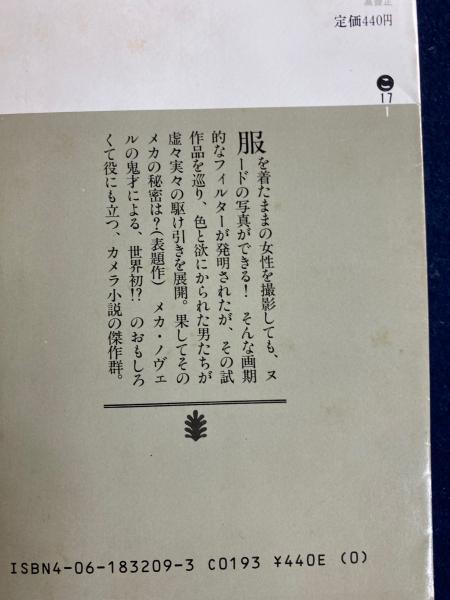 定価440円
こ
17
1
服を着たままの女性を撮影しても、ヌ
ードの写真ができる! そんな画期
的なフィルターが発明されたが、その試
作品を巡り、色と欲にかられた男たちが
虚々実々の駆け引きを展開。果してその
メカの秘密は?(表題作) メカ・ノヴェ
ルの鬼才による、世界初!? のおもしろ
くて役にも立つ、カメラ小説の傑作群。
ISBN4-06-183209-3 C0193 ¥440E (0)